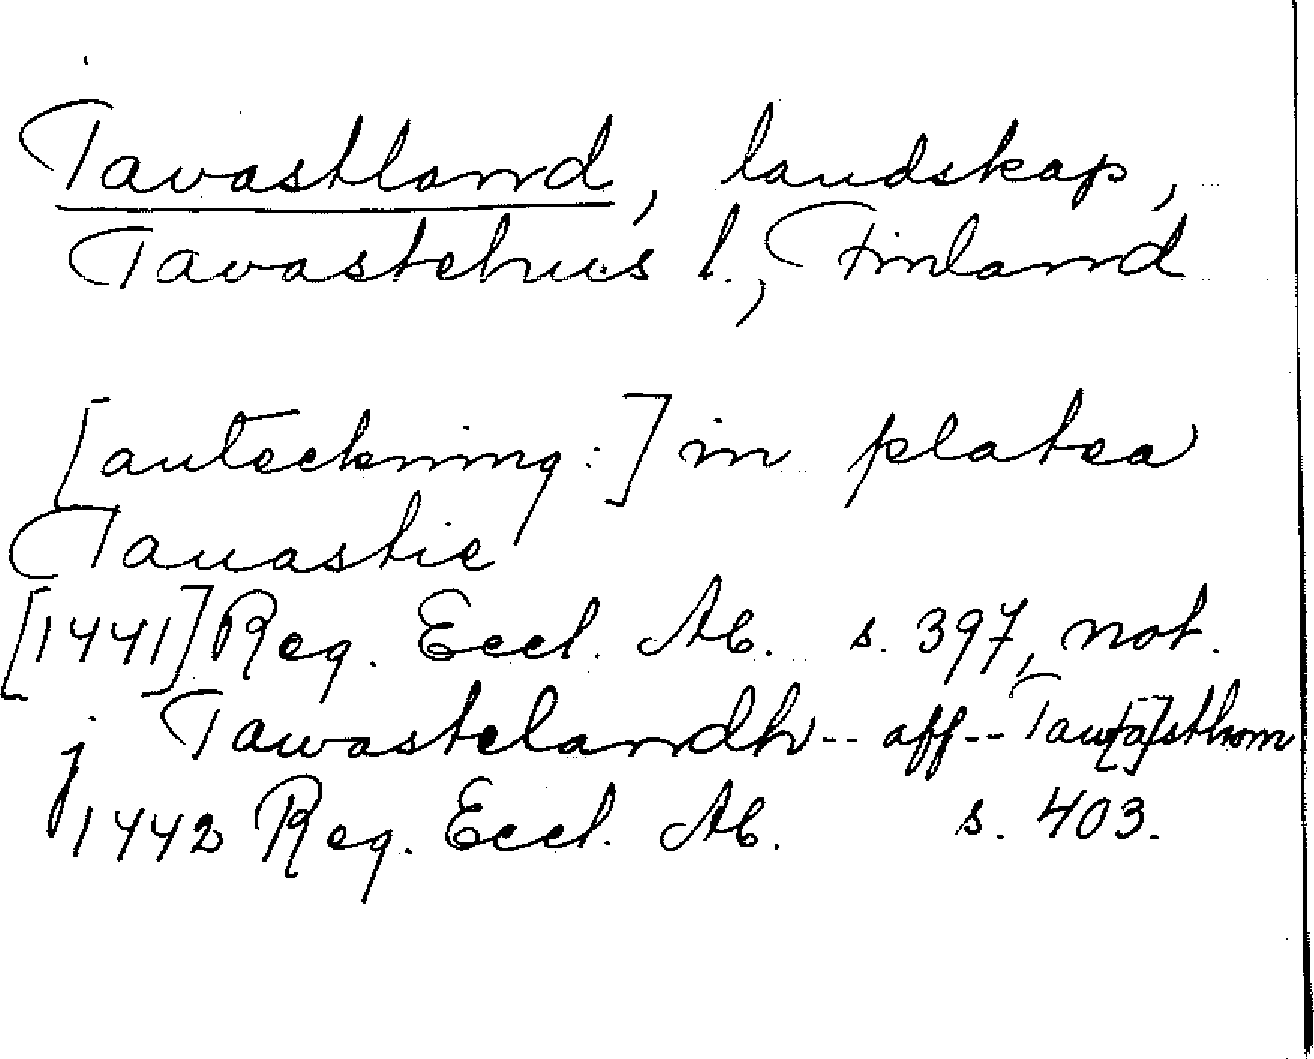 Tavastland, landskap,
Tavastehus l., Finland
[anteckning:] in platea
Tauastie
[1441] Reg. Eccl. Ab. s. 397, not.
j Tawastelandh -- aff -- Tau[a]sthom
1442 Reg. Eccl. Ab. s. 403.